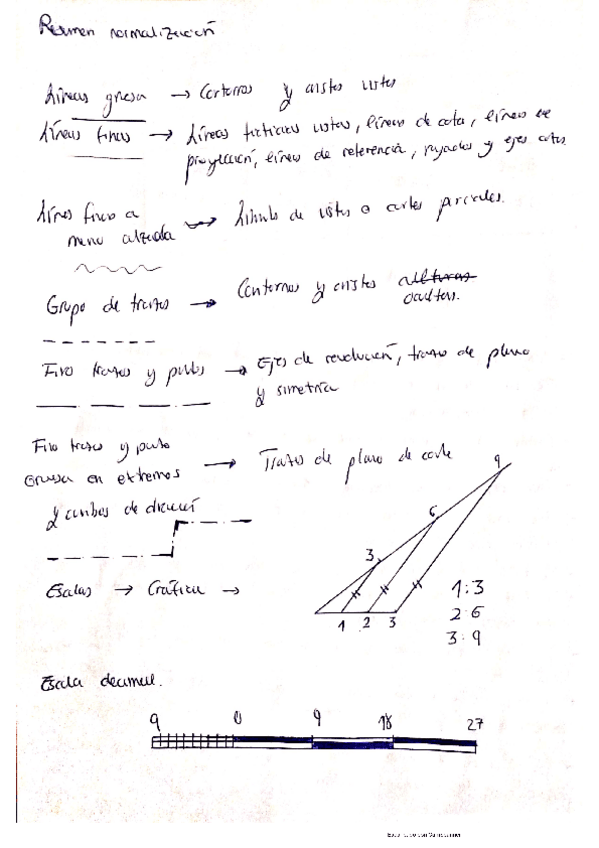 Resumen normalización
Líneas gruesa → Contornos y aristas vistas
Líneas finas → Líneas ficticias vistas, líneas de cota, líneas de
proyección, líneas de referencia, rayados y ejes cortos.
Línea fina a → Límite de vistas o cortes parciales.
mano alzada
Grupo de trazos → Contornos y aristas alturas
ocultas.
Fino trazos y puntos → Ejes de revolución, trazas de plano
y simetría
Fino trazo y punto
Gruesa en extremos → Trazas de plano de corte
y cambios de dirección
Escalas → Gráfica →
9
6
3
1 2 3
1:3
2:6
3:9
Escala decimal.
9 0 9 18 27